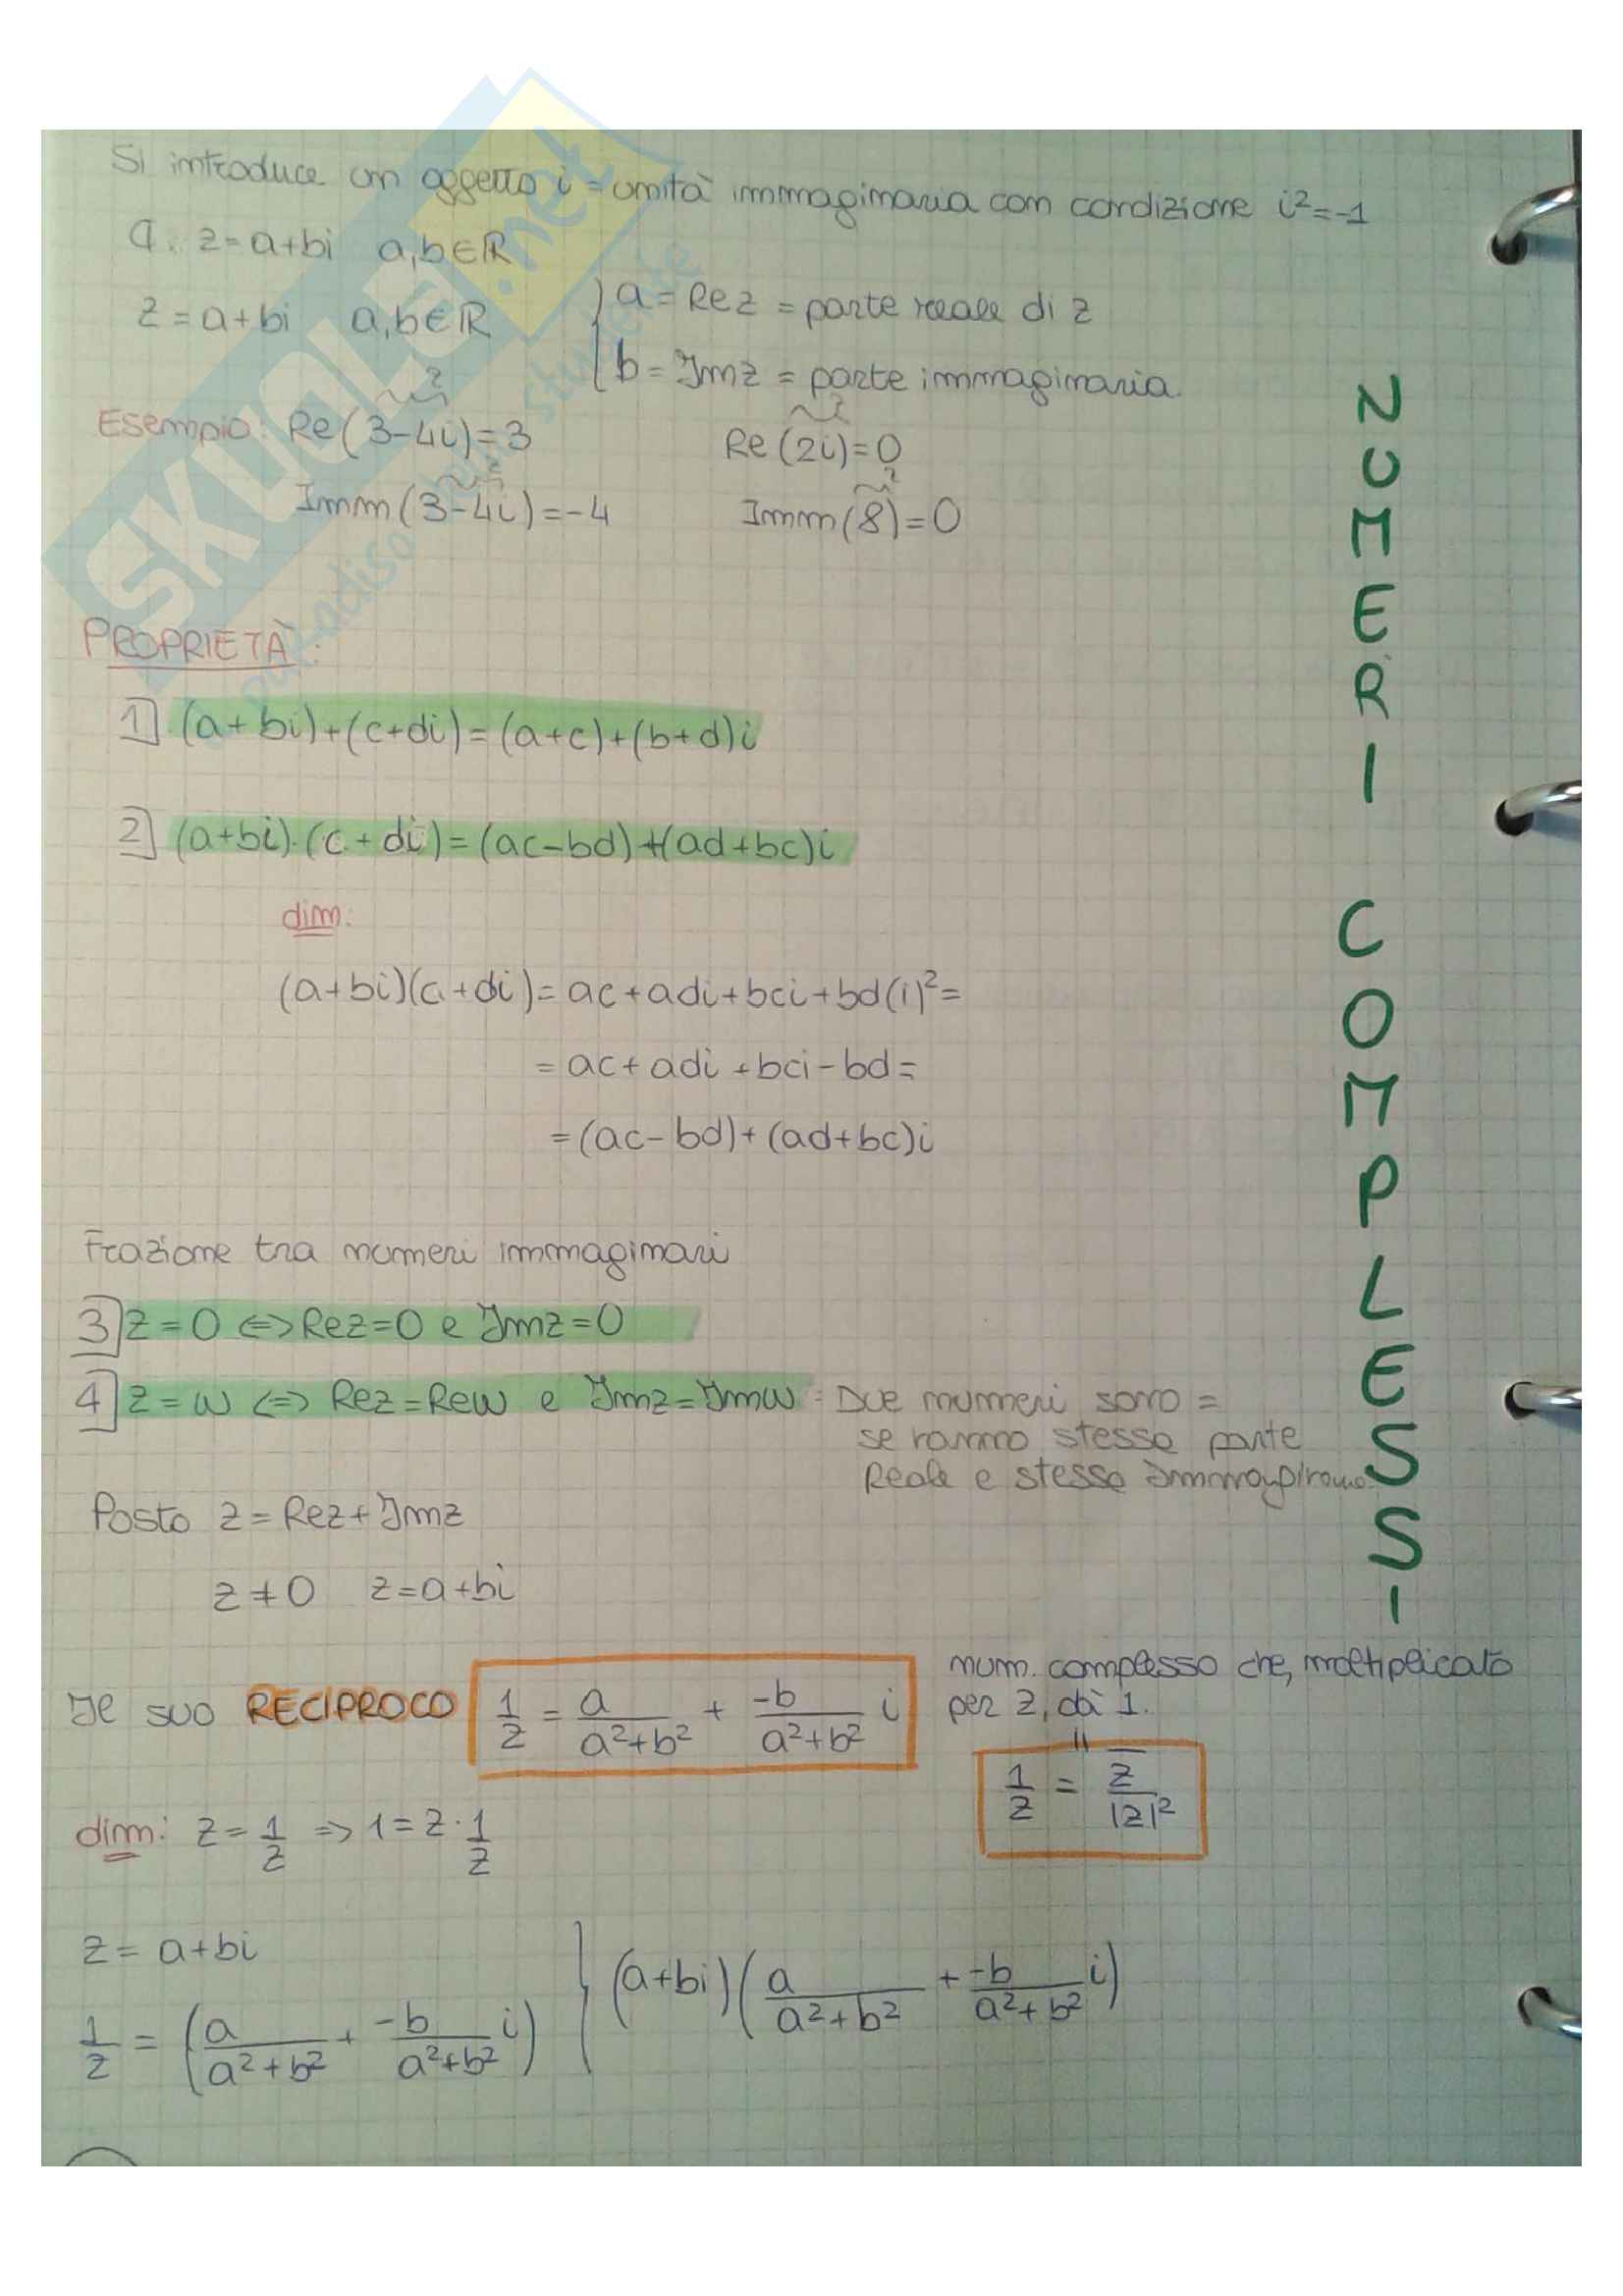 Si introduce un oggetto i = unità immaginaria con condizione i²=-1
z=a+bi a,b∈ℝ
z=a+bi a,b∈ℝ { a = Re z = parte reale di z
b = Im z = parte immaginaria
Esempio: Re(3-4i)=3 Re(2i)=0
Imm(3-4i)=-4 Imm(8)=0
PROPRIETÀ:
1] (a+bi)+(c+di)=(a+c)+(b+d)i
2] (a+bi)·(c+di)=(ac-bd)+(ad+bc)i
dim:
(a+bi)(c+di)=ac+adi+bci+bd(i)²=
=ac+adi+bci-bd=
=(ac-bd)+(ad+bc)i
Frazione tra numeri immaginari
3] z=0 <=> Rez=0 e Imz=0
4] z=w <=> Rez=Rew e Imz=Imw : Due numeri sono =
se hanno stessa parte
Reale e stessa
Posto z=Rez+Imz
z≠0 z=a+bi
Il suo RECIPROCO 1/z = a/(a²+b²) + -b/(a²+b²) i
num. complesso che, moltiplicato
per z, dà 1.
1/z = z̅/|z|²
dim: z=1/z => 1=z·1/z
z=a+bi
1/z = (a/(a²+b²) + -b/(a²+b²) i) } (a+bi)(a/(a²+b²) + -b/(a²+b²) i)
NUMERI COMPLESSI
SKUOLA.net